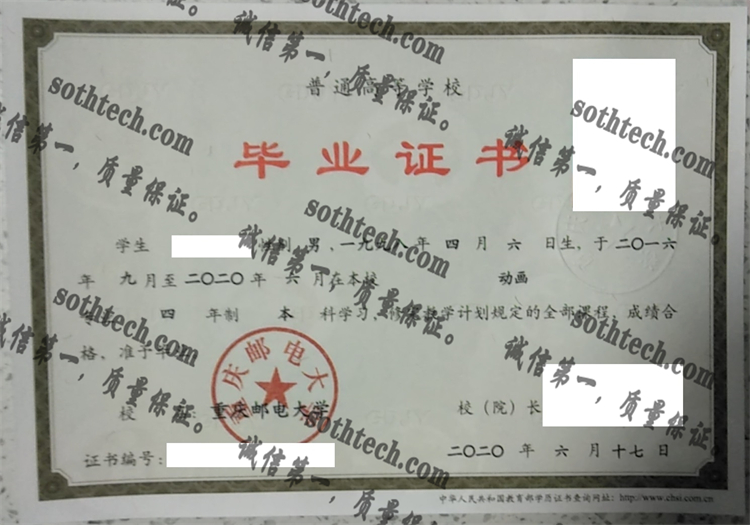 普通高等学校
毕业证书
学生 性别 男，一九九八年 四 月 六 日生，于二〇一六
年 九 月至二〇二〇年 六 月在本校 动画
专业 四 年制 本 科学习，修完教学计划规定的全部课程，成绩合
格，准予毕业
校 名：重庆邮电大学 校（院）长
证书编号：
二〇二〇 年 六 月 十七 日
中华人民共和国教育部学历证书查询网址：http://www.chsi.com.cn
重庆邮电大学
sothtech.com
诚信第一，质量保证。
sothtech.com
诚信第一，质量保证。
sothtech.com
诚信第一，质量保证。
sothtech.com
诚信第一，质量保证。
sothtech.com
诚信第一，质量保证。
sothtech.com
诚信第一，质量保证。
sothtech.com
诚信第一，质量保证。